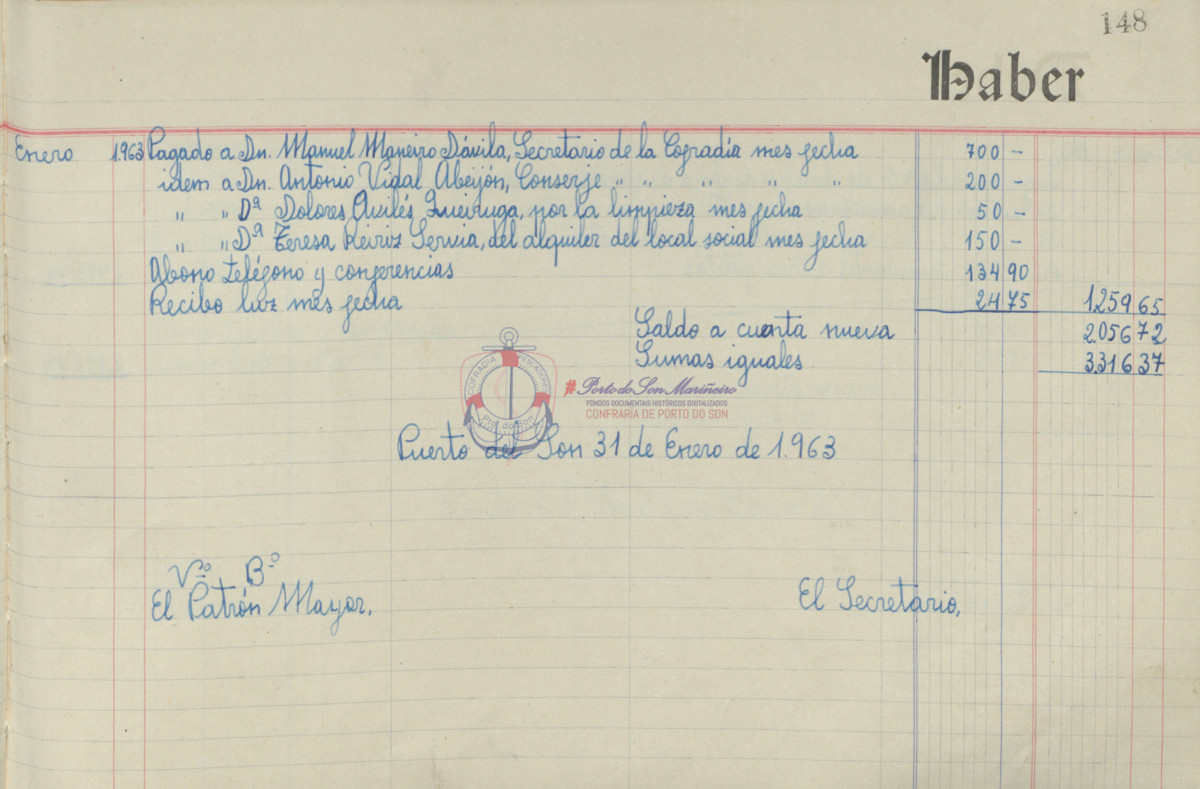 148
Haber
Enero 1.963 Pagado a Dn. Manuel Maneiro Dávila, Secretario de la Cofradía mes fecha 700 -
idem a Dn. Antonio Vidal Abeijón, Conserje " " " " " 200 -
" " Dª Dolores Avilés Queiruga, por la limpieza mes fecha 50 -
" " Dª Teresa Reiriz Servia, del alquiler del local social mes fecha 150 -
Abono teléfono y conferencias 134 90
Recibo luz mes fecha 24 75 1.259 65
Saldo a cuenta nueva 2.056 72
Sumas iguales 3.316 37
COFRADIA PESCADORES
Pto. do Son
#Porto do Son Mariñeiro
FONDOS DOCUMENTAIS HISTÓRICOS DIXITALIZADOS
CONFRARÍA DE PORTO DO SON
Puerto del Son 31 de Enero de 1.963
Vº Bº
El Patrón Mayor,
El Secretario,